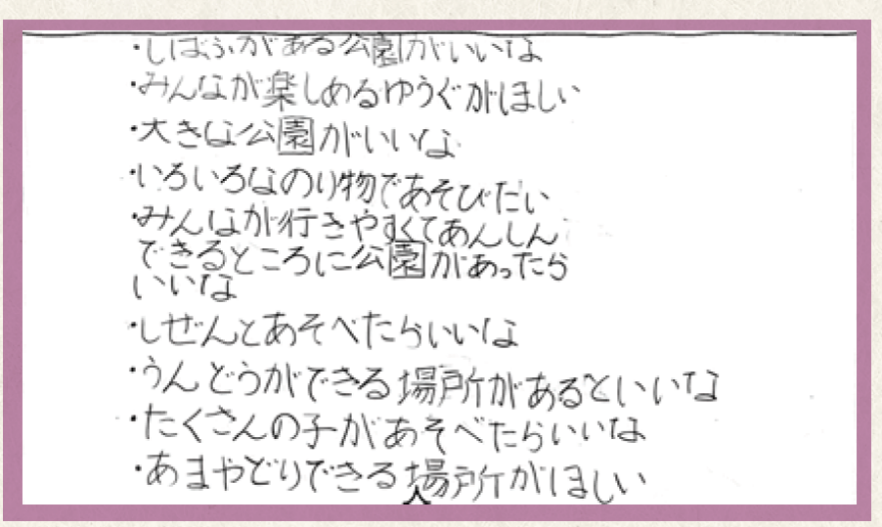 ・しばふがある公園がいいな
・みんなが楽しめるゆうぐがほしい
・大きな公園がいいな
・いろいろなのり物であそびたい
・みんなが行きやすくてあんしん
できるところに公園があったら
いいな
・しぜんとあそべたらいいな
・うんどうができる場所があるといいな
・たくさんの子があそべたらいいな
・あまやどりできる場所がほしい